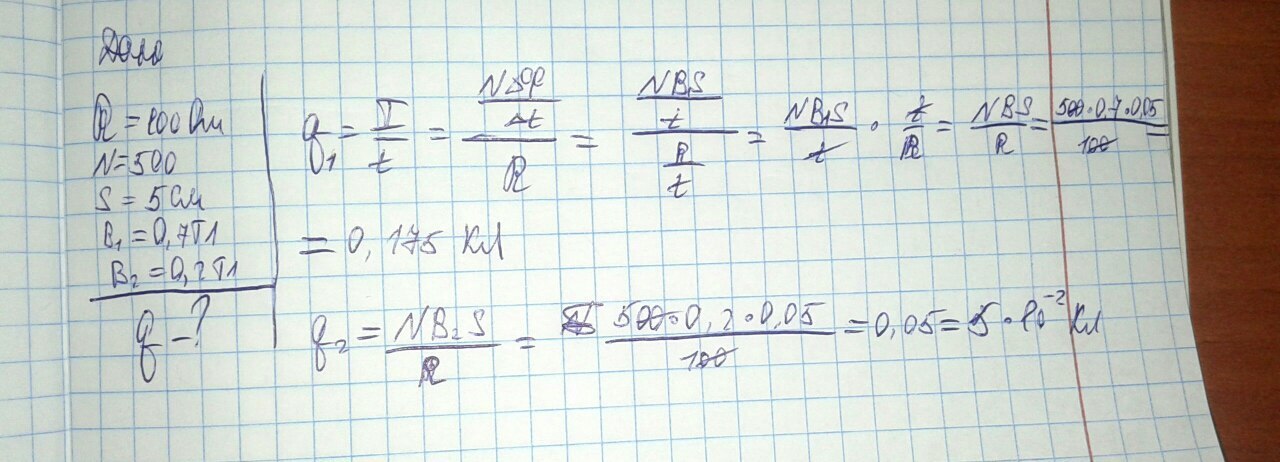 Дано
R = 100 Ом
N = 500
S = 5 см
B₁ = 0,7 Тл
B₂ = 0,2 Тл
q - ?
q₁ = I/t = (NΔФ/Δt)/R = (NBS/t)/(R/t) = NB₁S/t · t/R = NBS/R = 500·0,7·0,05/100 =
= 0,175 Кл
q₂ = NB₂S/R = 500·0,2·0,05/100 = 0,05 = 5·10⁻² Кл